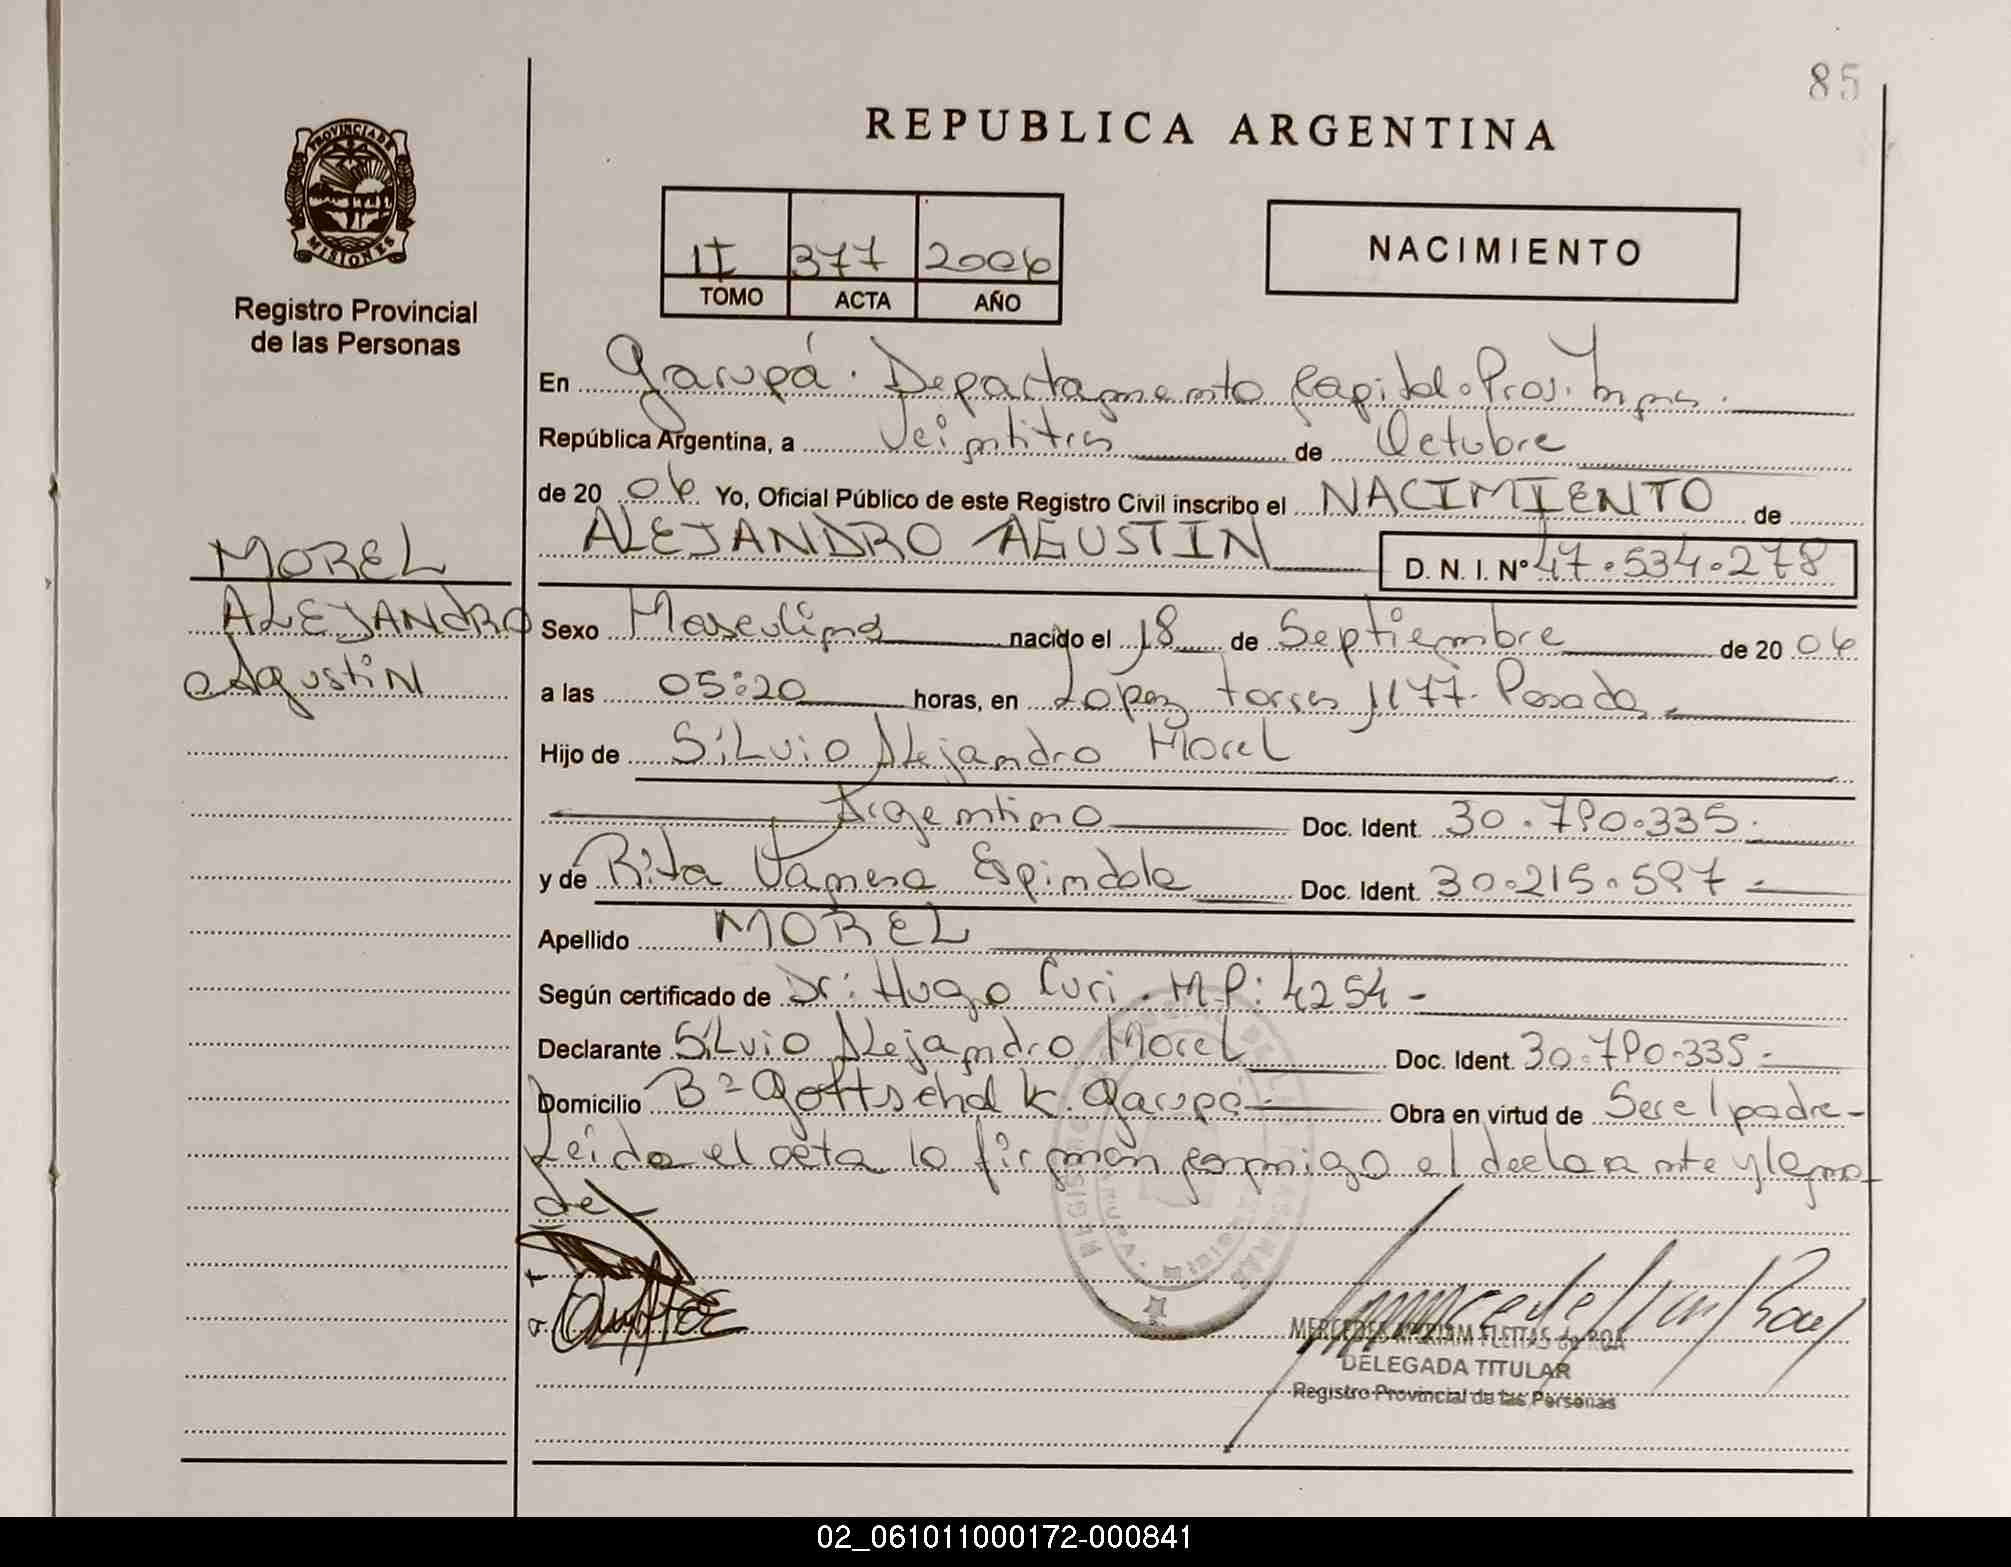 85
REPUBLICA ARGENTINA
PROVINCIA DE
MISIONES
Registro Provincial
de las Personas
II 377 2006
TOMO ACTA AÑO
NACIMIENTO
En Garupá. Departamento Capital. Prov. Mnes.
República Argentina, a Veintitres de Octubre
de 20 06 Yo, Oficial Público de este Registro Civil inscribo el NACIMIENTO de
ALEJANDRO AGUSTIN D. N. I. Nº 47.534.278
MOREL
ALEJANDRO
Agustin
Sexo Masculino nacido el 18 de Septiembre de 20 06
a las 05:20 horas, en Lopez Torres 1177. Posadas
Hijo de Silvio Alejandro Morel
Argentino Doc. Ident. 30.790.335.-
y de Rita Vanesa Espindola Doc. Ident. 30.215.597.-
Apellido MOREL
Según certificado de Dr: Hugo Curi. M.P: 4254-
Declarante Silvio Alejandro Morel Doc. Ident. 30.790.335.-
Domicilio Bº Gottschalk. Garupá- Obra en virtud de Ser el padre-
Leida el acta la firman conmigo el declarante y la ma-
de-
MERCEDES MIRIAM FLEITAS de ROA
DELEGADA TITULAR
Registro Provincial de las Personas
02_061011000172-000841